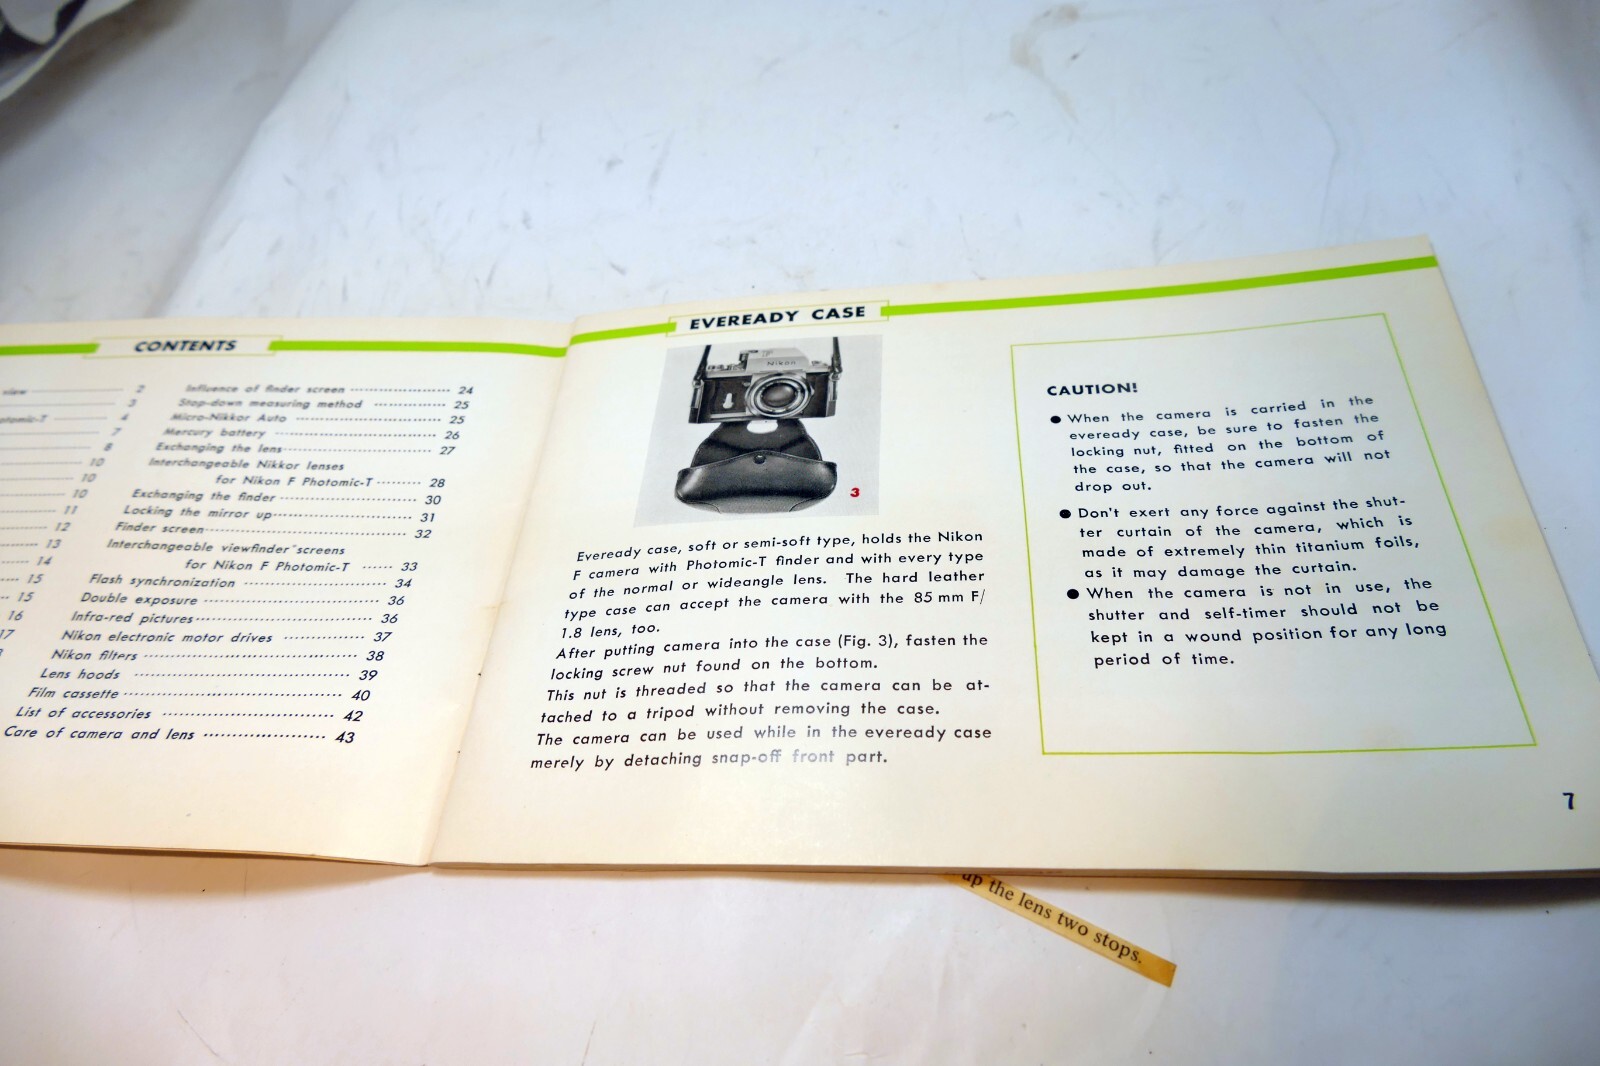 CONTENTS
view 2
3
4
7
8
10
10
10
11
12
13
14
15
15
16
17
Influence of finder screen 24
Stop-down measuring method 25
Micro-Nikkor Auto 25
Mercury battery 26
Exchanging the lens 27
Interchangeable Nikkor lenses
for Nikon F Photomic-T 28
Exchanging the finder 30
Locking the mirror up 31
Finder screen 32
Interchangeable viewfinder screens
for Nikon F Photomic-T 33
Flash synchronization 34
Double exposure 36
Infra-red pictures 36
Nikon electronic motor drives 37
Nikon filters 38
Lens hoods 39
Film cassette 40
List of accessories 42
Care of camera and lens 43
EVEREADY CASE
Nikon
3
Eveready case, soft or semi-soft type, holds the Nikon
F camera with Photomic-T finder and with every type
of the normal or wideangle lens. The hard leather
type case can accept the camera with the 85 mm F/
1.8 lens, too.
After putting camera into the case (Fig. 3), fasten the
locking screw nut found on the bottom.
This nut is threaded so that the camera can be at-
tached to a tripod without removing the case.
The camera can be used while in the eveready case
merely by detaching snap-off front part.
CAUTION!
● When the camera is carried in the
eveready case, be sure to fasten the
locking nut, fitted on the bottom of
the case, so that the camera will not
drop out.
● Don't exert any force against the shut-
ter curtain of the camera, which is
made of extremely thin titanium foils,
as it may damage the curtain.
● When the camera is not in use, the
shutter and self-timer should not be
kept in a wound position for any long
period of time.
7
up the lens two stops.